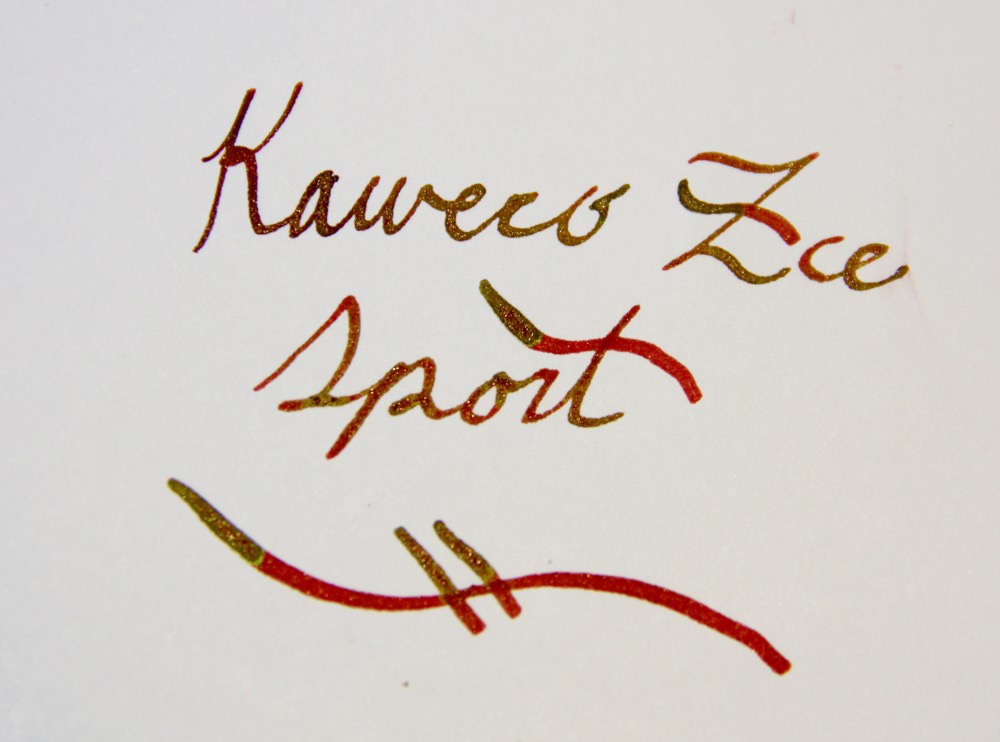 Kaweco Ice
Sport